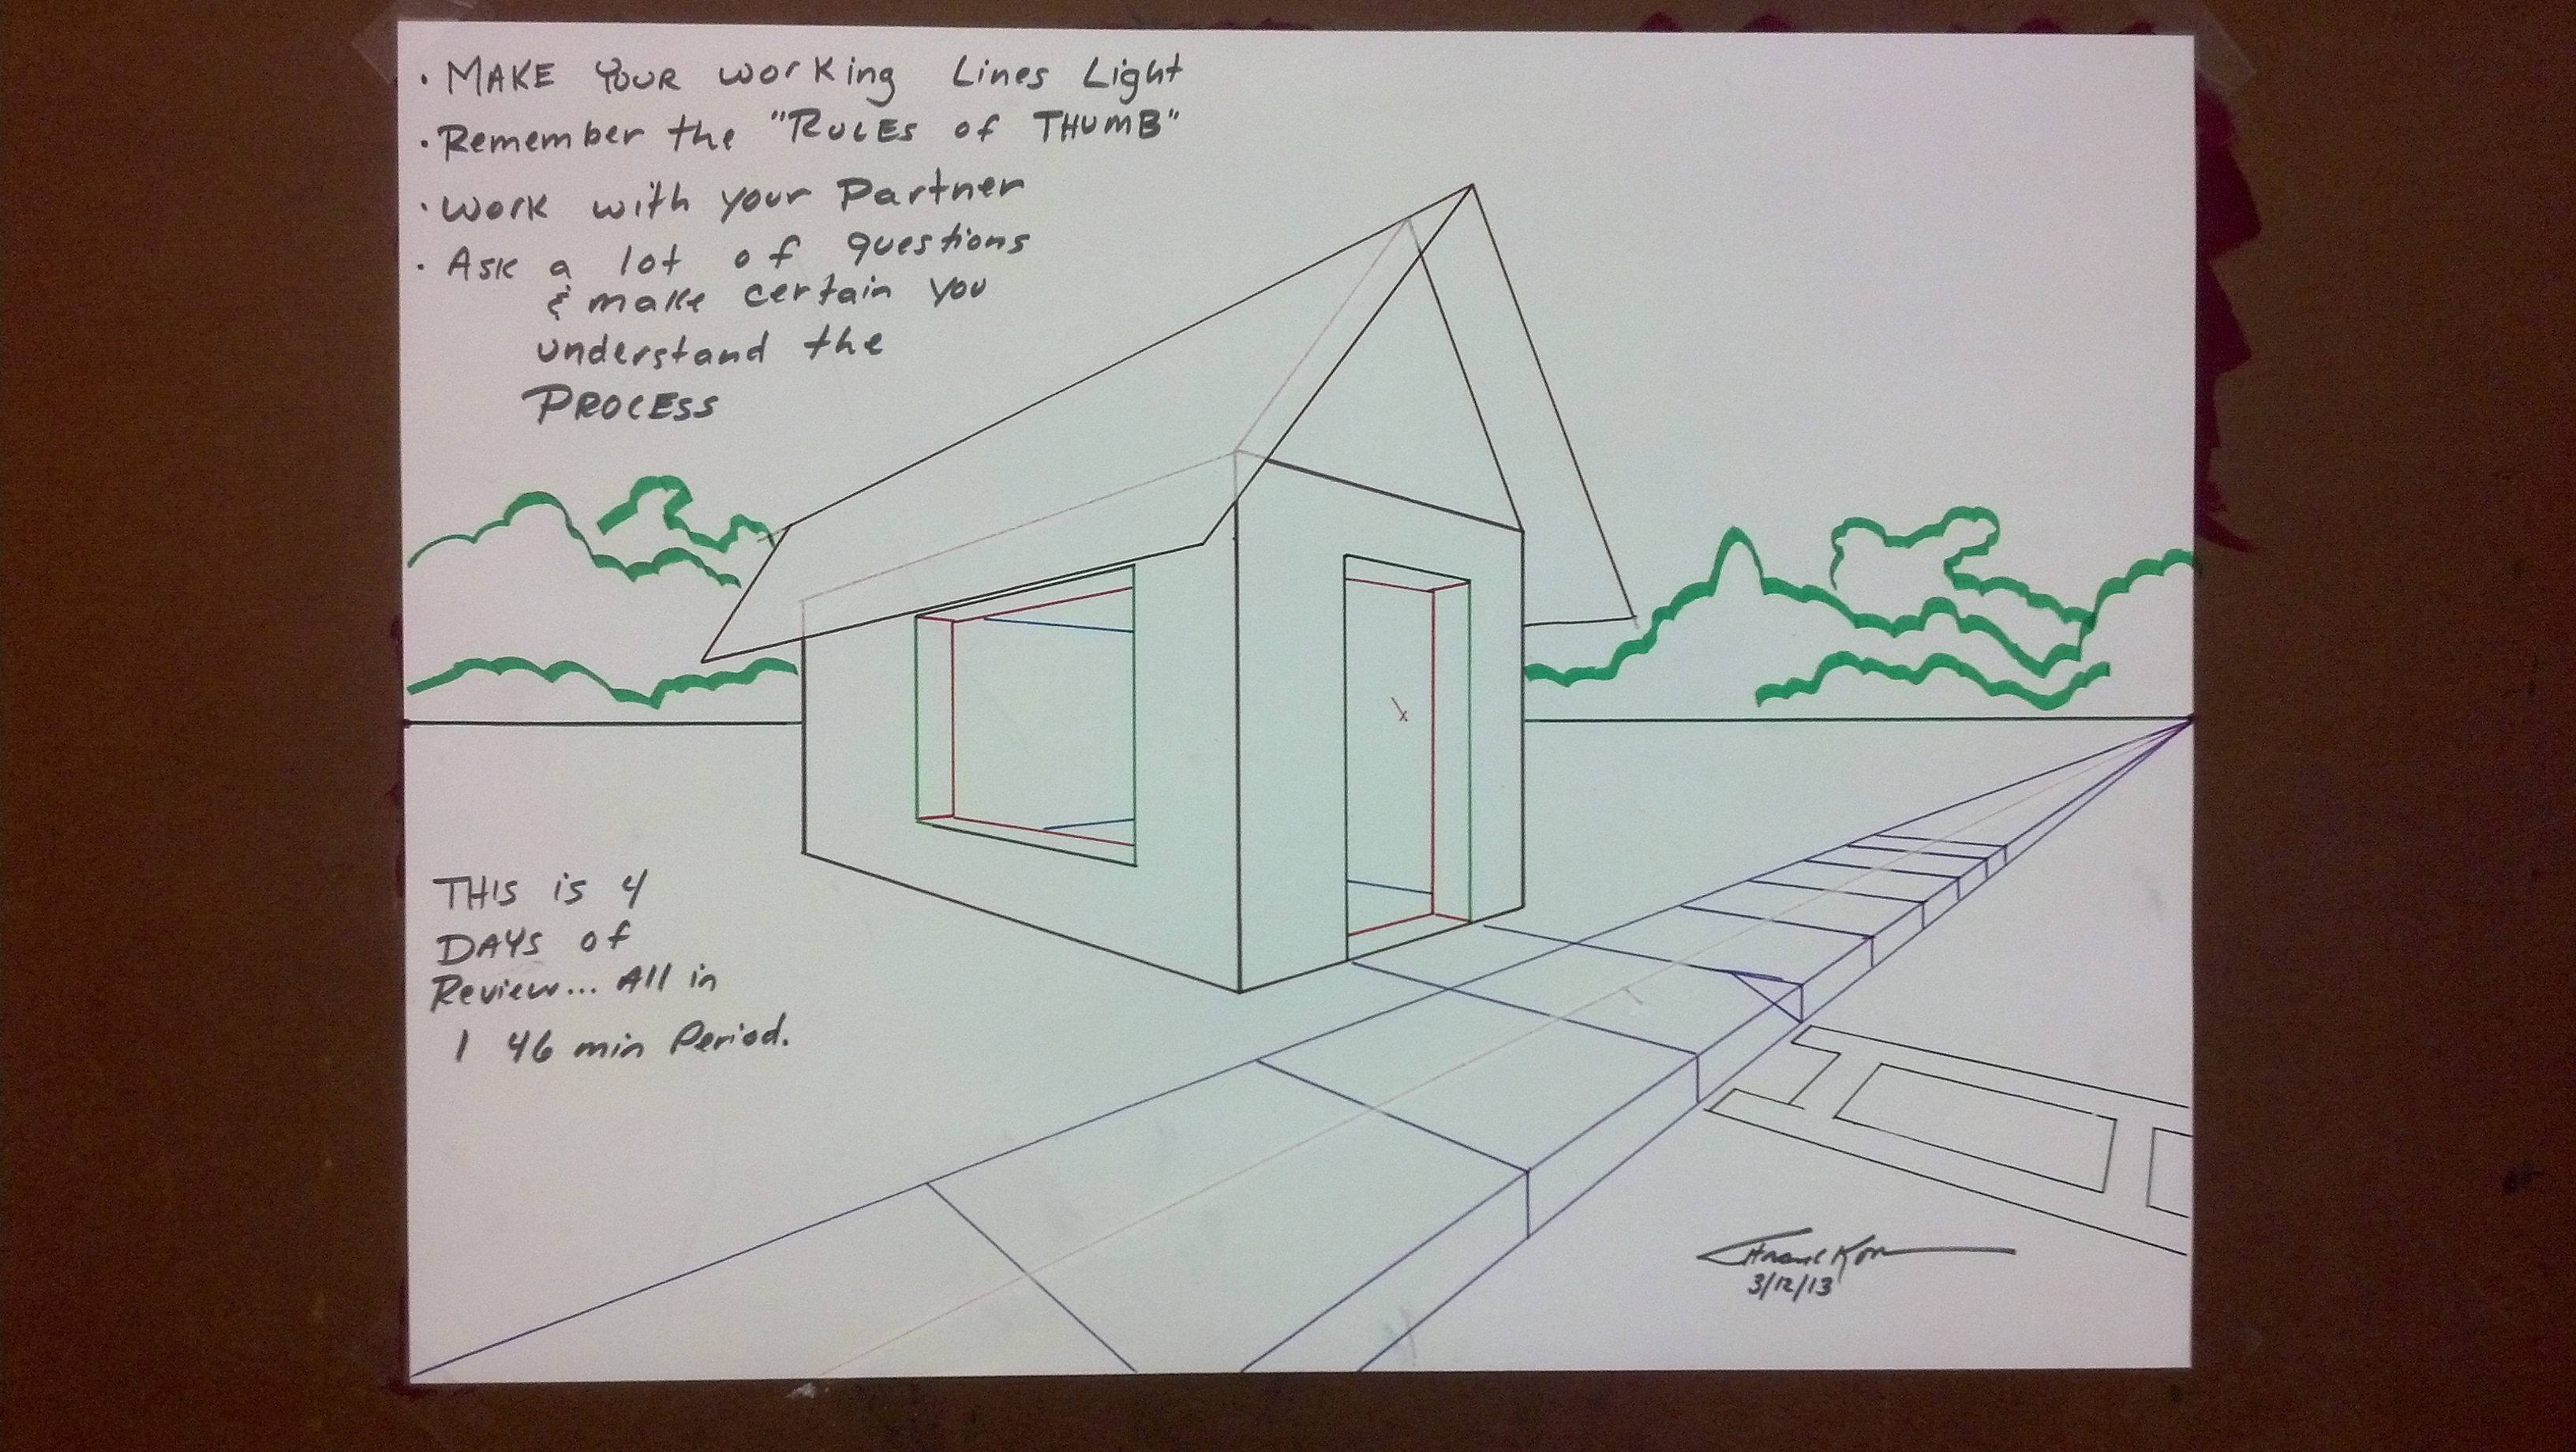 • MAKE YOUR working Lines Light
• Remember the "RULES of THUMB"
• Work with your Partner
• Ask a lot of questions
& make certain you
understand the
PROCESS
THIS is 4
DAYS of
Review... All in
1 46 min Period.
3/12/13